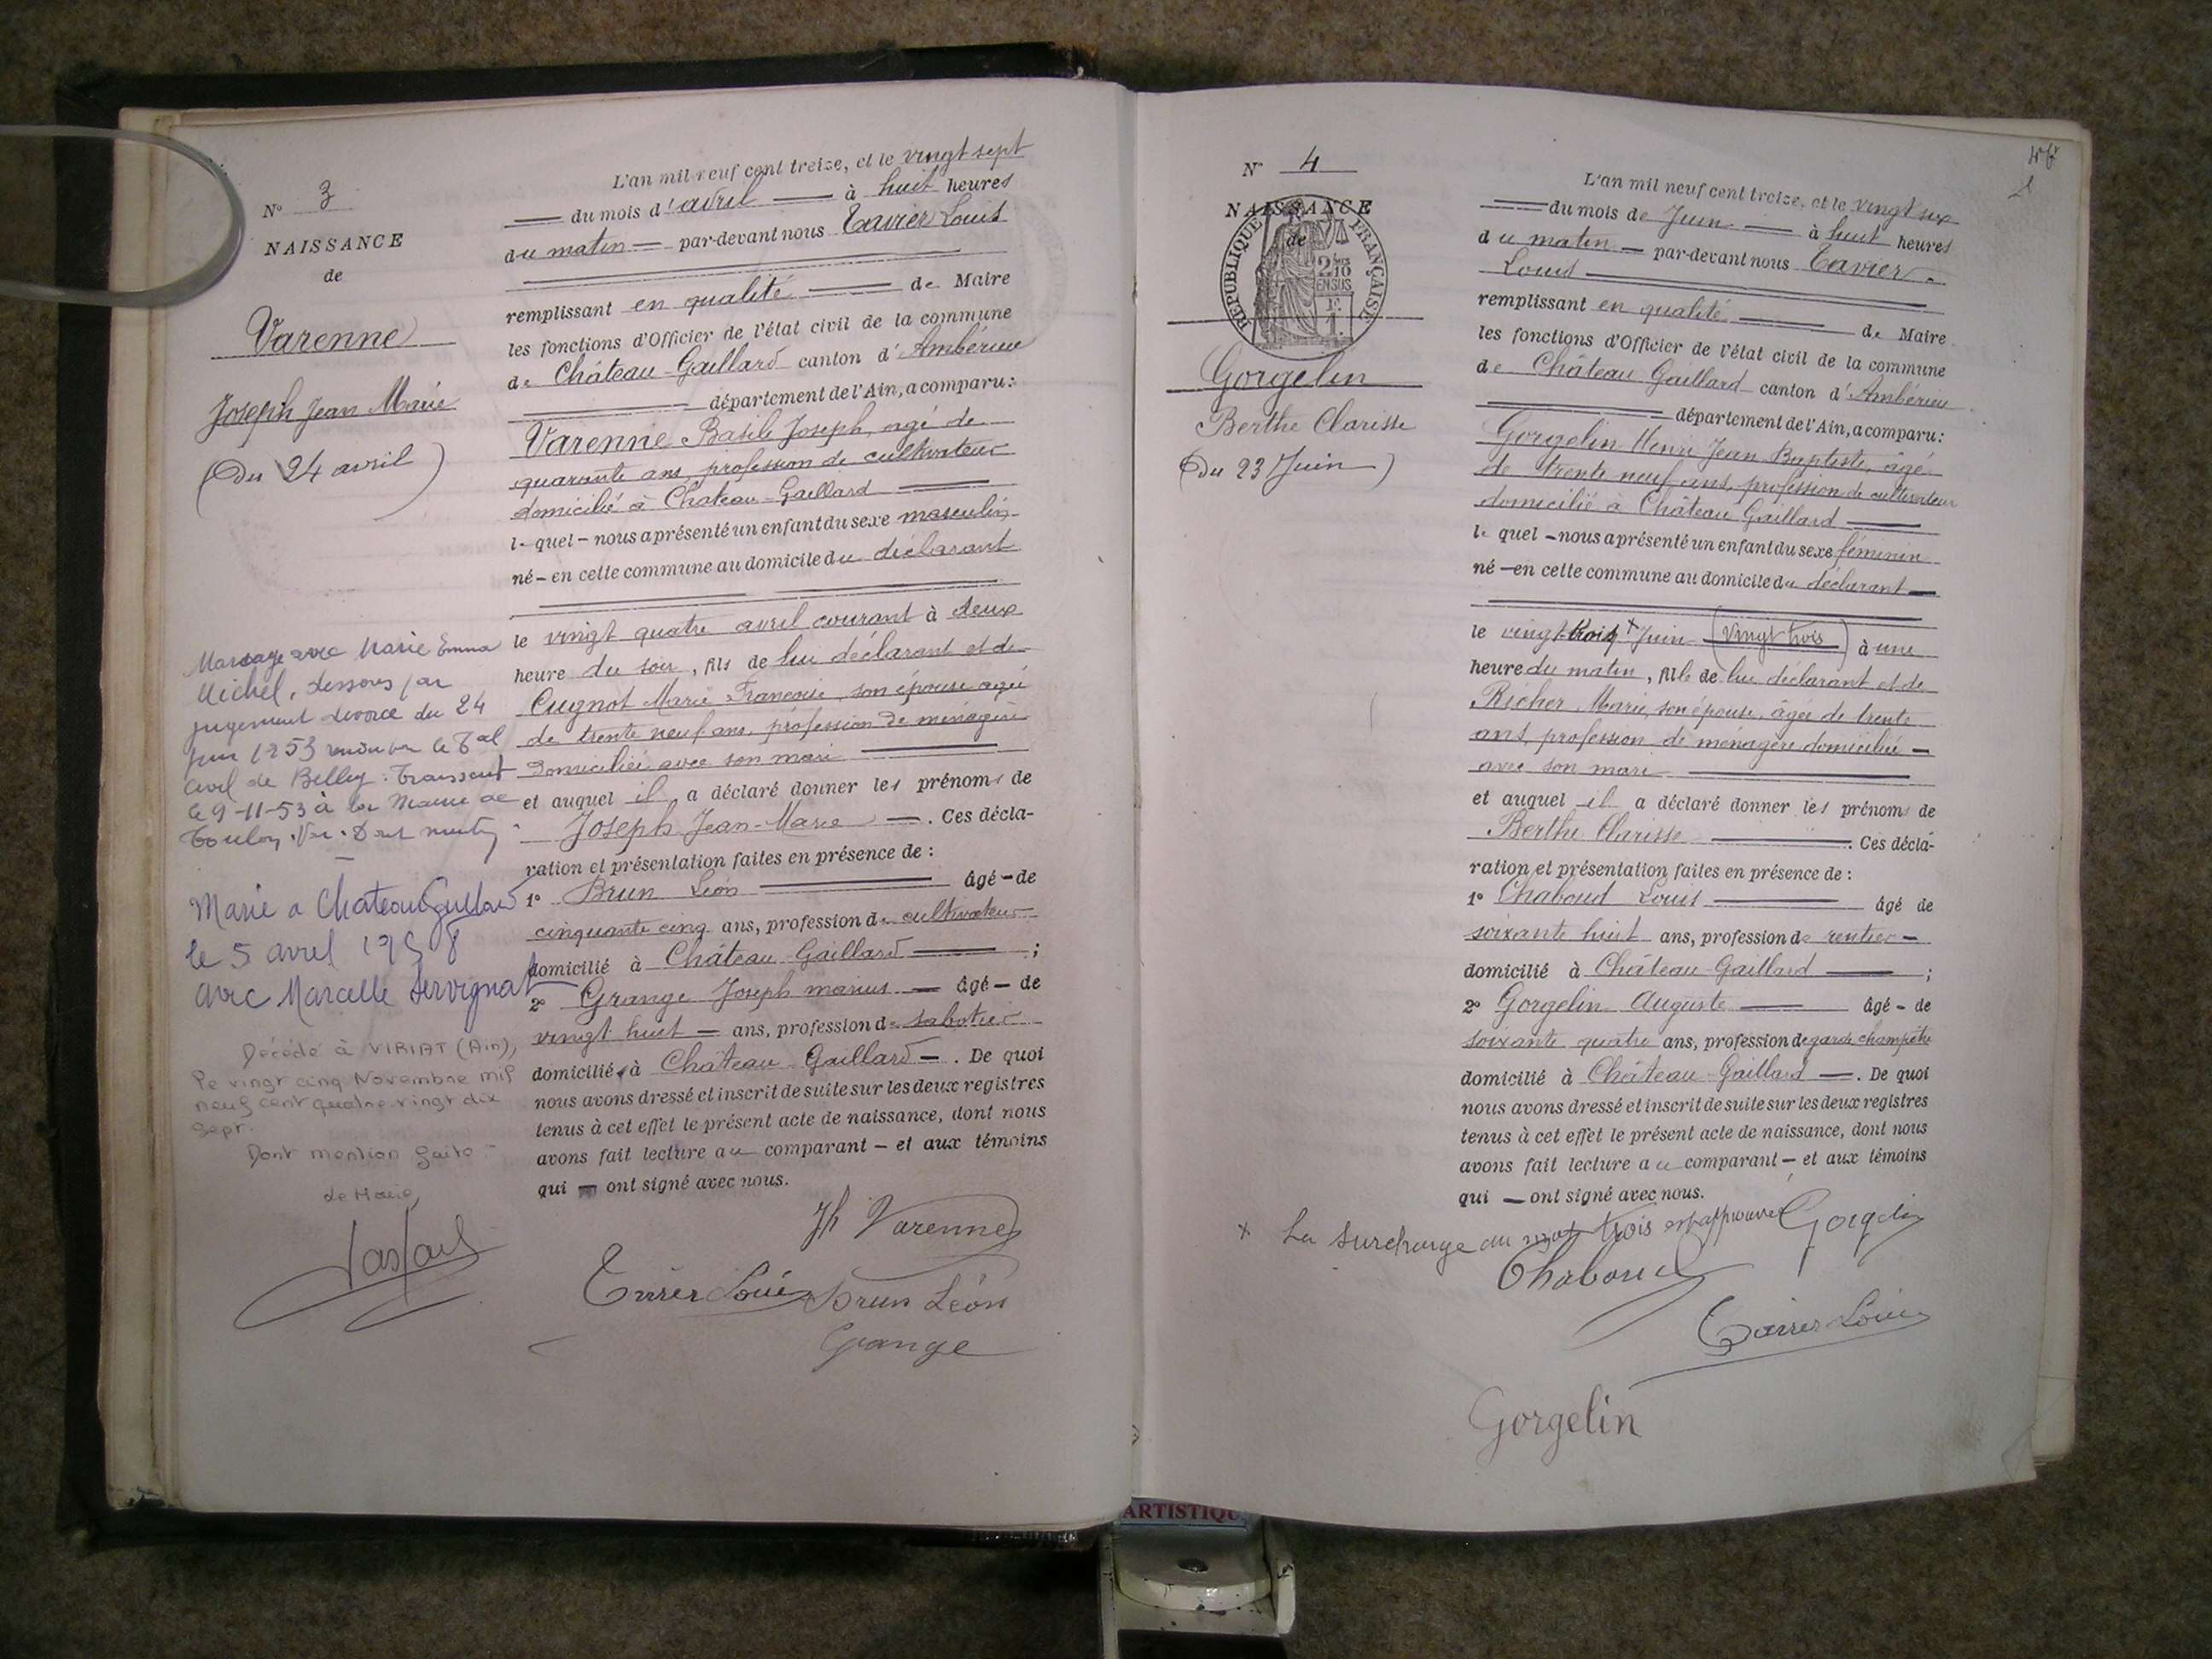 N° 3
NAISSANCE
de
Varenne
Joseph Jean Marie
(Du 24 avril)
Mariage avec Marie Emma
Michel, dissous par
jugement divorce du 24
juin 1953 rendu par le Tal
civil de Belley. Transcrit
le 9-11-53 à la Mairie de
Toulon. Var. Dont mention
Marié a Chateau Gaillard
le 5 avril 1958
avec Marcelle Servignat
Décédé à VIRIAT (Ain),
le vingt cinq Novembre mil
neuf cent quatre vingt dix
sept.
Dont mention faite
Le Maire,
L'an mil neuf cent treize, et le vingt sept
du mois d'avril à huit heures
du matin par-devant nous Tavier Louis
remplissant en qualité de Maire
les fonctions d'Officier de l'état civil de la commune
de Château-Gaillard canton d'Ambérieu
département de l'Ain, a comparu :
Varenne Basile Joseph, agé de
quarante ans, profession de cultivateur
domicilié à Chateau-Gaillard
lequel nous a présenté un enfant du sexe masculin
né en cette commune au domicile du déclarant
le vingt quatre avril courant à deux
heure du soir, fils de lui déclarant et de
Cugnot Marie Françoise, son épouse agée
de trente neuf ans, profession de ménagère
domiciliée avec son mari
et auquel il a déclaré donner les prénoms de
Joseph Jean-Marie. Ces décla-
ration et présentation faites en présence de :
1° Brun Léon âgé de
cinquante cinq ans, profession de cultivateur
domicilié à Château Gaillard ;
2° Grange Joseph marius âgé de
vingt huit ans, profession de sabotier
domicilié à Château Gaillard. De quoi
nous avons dressé et inscrit de suite sur les deux registres
tenus à cet effet le présent acte de naissance, dont nous
avons fait lecture au comparant et aux témoins
qui ont signé avec nous.
Jh Varenne
Tavier Louis Brun Léon
Grange
N° 4
NAISSANCE
de
RÉPUBLIQUE FRANÇAISE
2/10
EN SUS
F.
1.
Gorgelin
Berthe Clarisse
(Du 23 Juin)
L'an mil neuf cent treize, et le vingt six
du mois de Juin à huit heures
du matin par-devant nous Tavier
Louis
remplissant en qualité de Maire
les fonctions d'Officier de l'état civil de la commune
de Château Gaillard canton d'Ambérieu
département de l'Ain, a comparu :
Gorgelin Henri Jean Baptiste, âgé
de trente neuf ans, profession de cultivateur
domicilié à Château Gaillard
lequel nous a présenté un enfant du sexe féminin
né en cette commune au domicile du déclarant
le vingt-trois x Juin (vingt trois) à une
heure du matin, fille de lui déclarant et de
Richer Marie, son épouse, âgée de trente
ans, profession de ménagère domiciliée
avec son mari
et auquel il a déclaré donner les prénoms de
Berthe Clarisse. Ces décla-
ration et présentation faites en présence de :
1° Chaboud Louis âgé de
soixante huit ans, profession de rentier
domicilié à Château-Gaillard ;
2° Gorgelin Auguste âgé de
soixante quatre ans, profession de garde champêtre
domicilié à Château-Gaillard. De quoi
nous avons dressé et inscrit de suite sur les deux registres
tenus à cet effet le présent acte de naissance, dont nous
avons fait lecture au comparant et aux témoins
qui ont signé avec nous.
x La surcharge du mot trois est approuvée Gorgelin
Chaboud
Tavier Louis
Gorgelin
ARTISTIQU